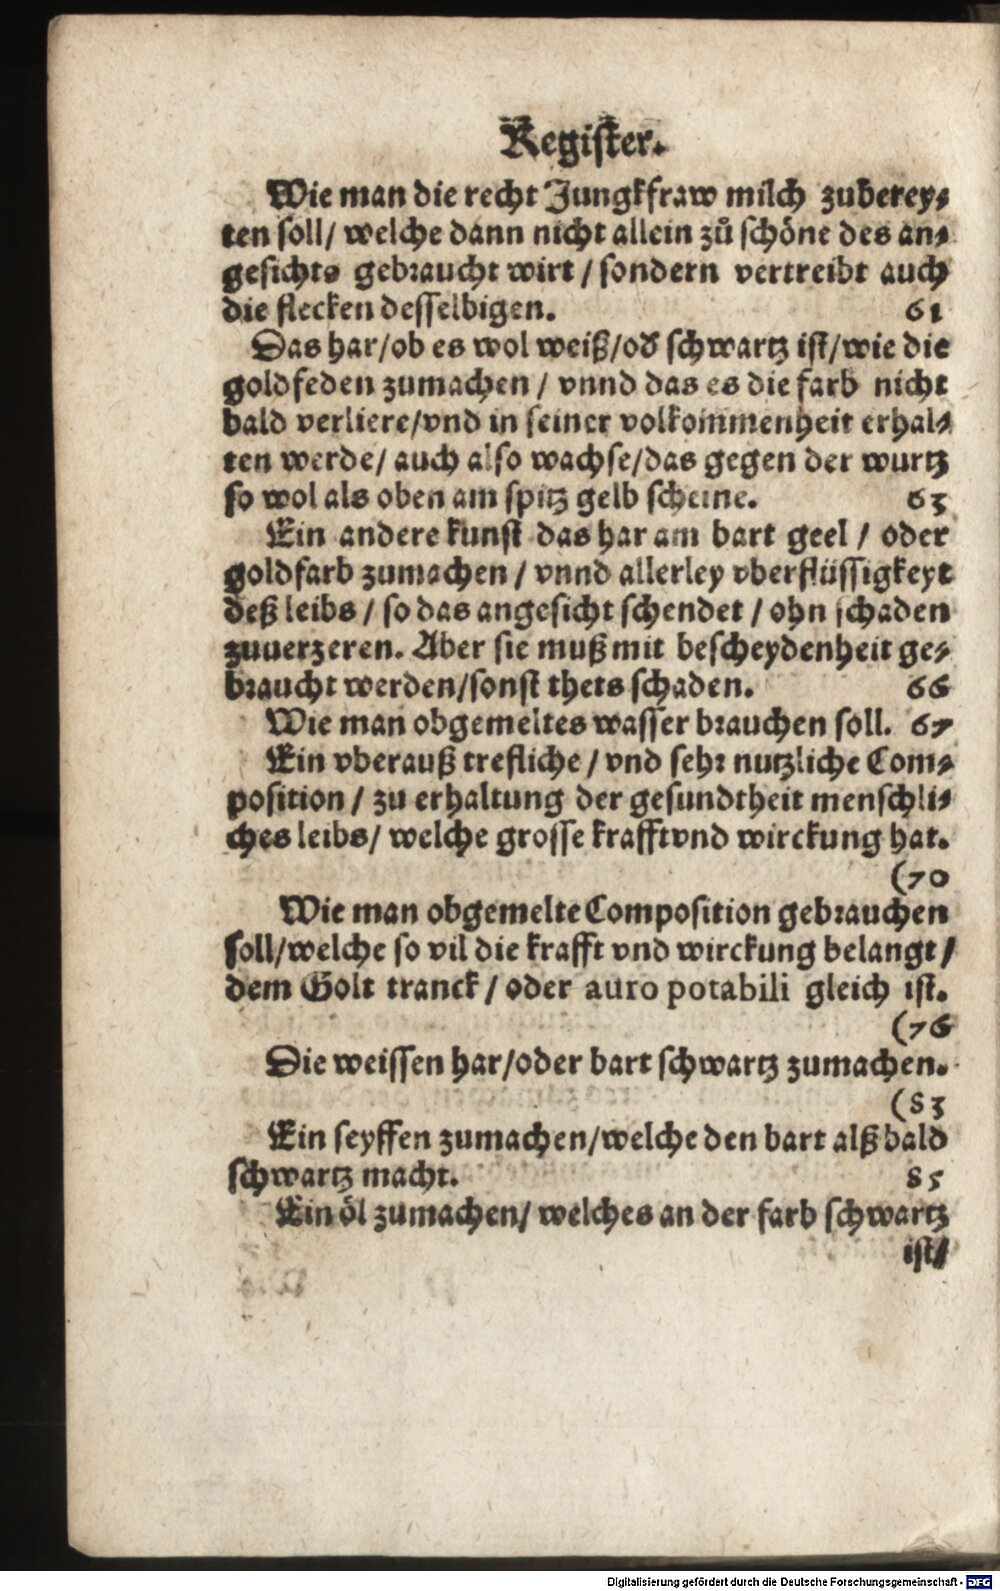 Register.
Wie man die recht Jungkfraw milch zuberey-
ten soll/ welche dann nicht allein zů schöne des an-
gesichts gebraucht wirt / sondern vertreibt auch
die flecken desselbigen. 61
Das har/ob es wol weiß/od̕ schwartz ist/wie die
goldfeden zumachen / vnnd das es die farb nicht
bald verliere/vnd in seiner volkommenheit erhal-
ten werde/ auch also wachse/das gegen der wurtz
so wol als oben am spitz gelb scheine. 63
Ein andere kunst das har am bart geel / oder
goldfarb zumachen / vnnd allerley vberflüssigkeyt
deß leibs / so das angesicht schendet / ohn schaden
zuuerzeren. Aber sie muß mit bescheydenheit ge-
braucht werden/sonst thets schaden. 66
Wie man obgemeltes wasser brauchen soll. 67
Ein vberauß trefliche / vnd sehr nutzliche Com-
position / zu erhaltung der gesundtheit menschli-
ches leibs/ welche grosse krafft vnd wirckung hat.
(70
Wie man obgemelte Composition gebrauchen
soll/welche so vil die krafft vnd wirckung belangt /
dem Golt tranck / oder auro potabili gleich ist.
(76
Die weissen har/oder bart schwartz zumachen.
(83
Ein seyffen zumachen/welche den bart alß bald
schwartz macht. 85
Ein öl zumachen/ welches an der farb schwartz
ist/
Digitalisierung gefördert durch die Deutsche Forschungsgemeinschaft - DFG